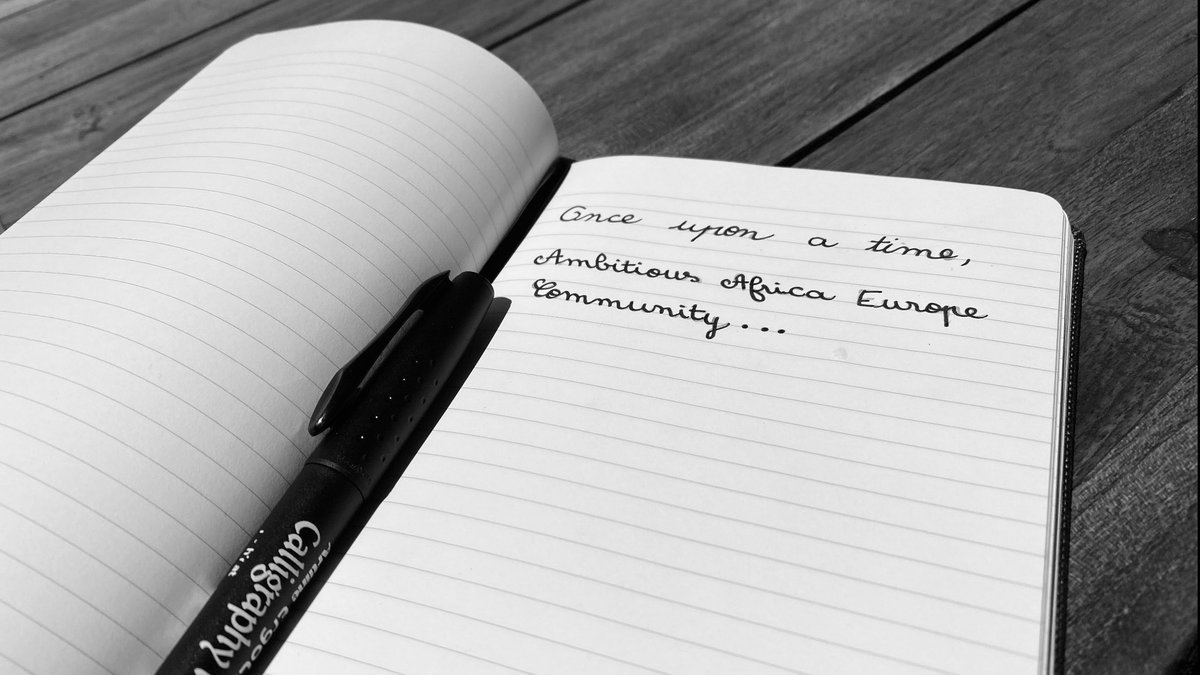 Once upon a time,
Ambitious Africa Europe
Community ...
Calligraphy